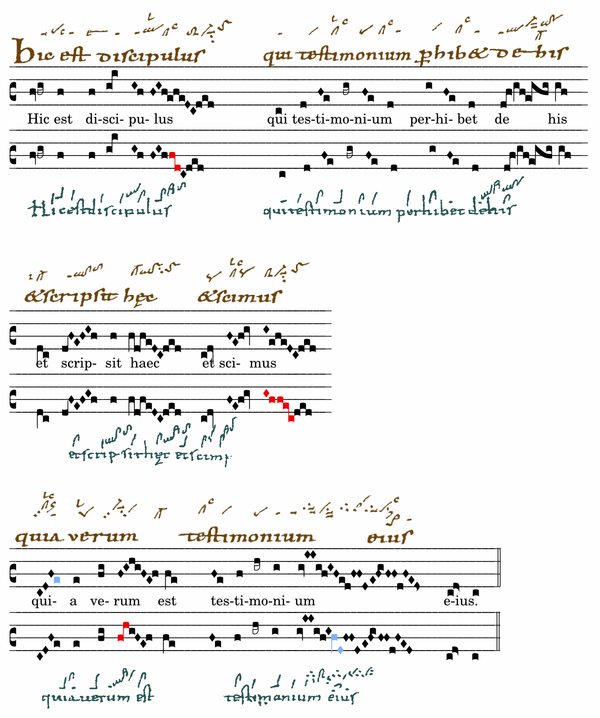 hic est discipulus qui testimonium phib& de his
Hic est di-sci- pu- lus qui tes-ti-mo-ni-um per-hi- bet de his
Hic est discipulus qui testimonium perhibet de his
&scripsit hęc &scimus
et scrip- sit haec et sci- mus
et scripsit hęc et scim
quia verum testimonium eius
qui- a ve- rum est tes-ti-mo-ni- um e-ius.
quia uerum est testimonium eius